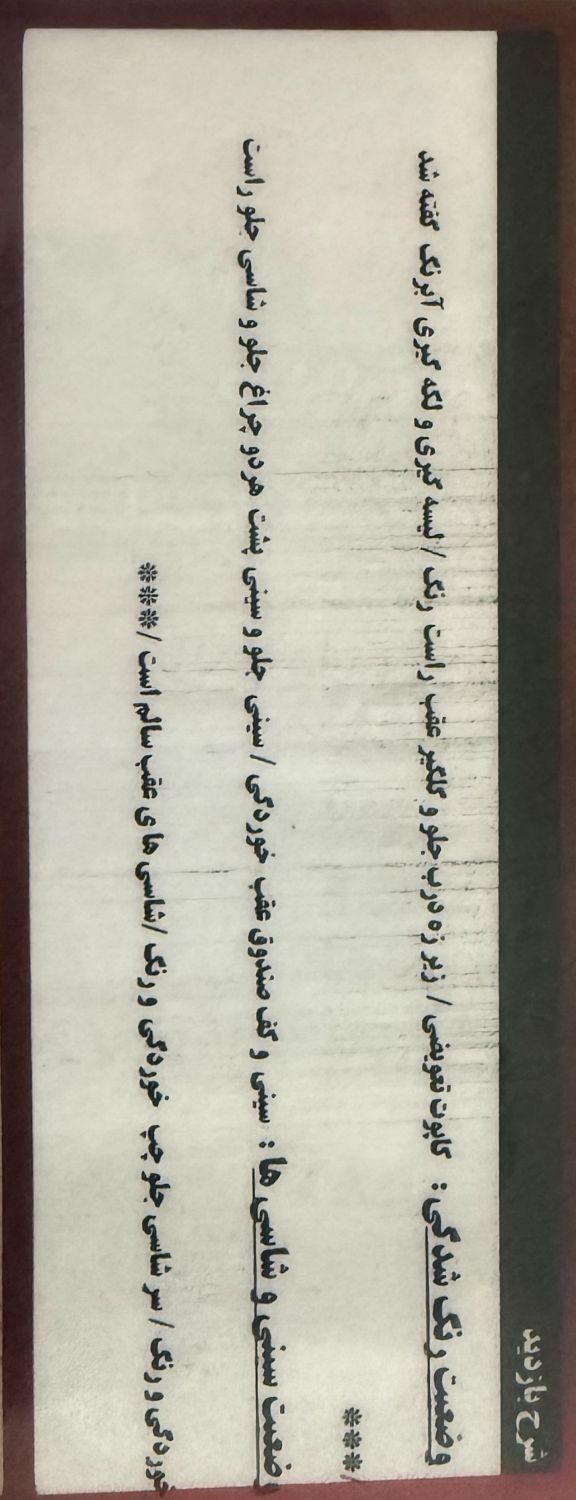 شرح بازدید
وضعیت رنگ شدگی : کاپوت تعویضی / زیر زه درب جلو و گلگیر عقب راست رنگ / لیسه گیری و لکه گیری آبرنگ گفته شد
/***
وضعیت سینی و شاسی ها : سینی و کف صندوق عقب خوردگی / سینی جلو و سینی پشت هردو چراغ جلو و شاسی جلو راست
خوردگی و رنگ / سر شاسی جلو چپ خوردگی و رنگ /شاسی های عقب سالم است /***